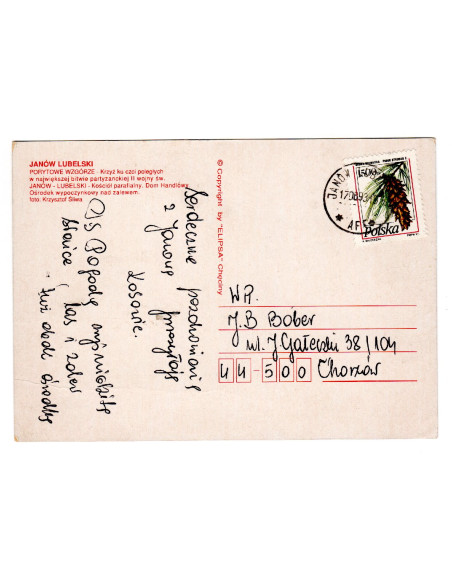 JANÓW LUBELSKI
PORYTOWE WZGÓRZE - Krzyż ku czci poległych
w największej bitwie partyzanckiej II wojny św.
JANÓW - LUBELSKI - Kościół parafialny. Dom Handlowy
Ośrodek wypoczynkowy nad zalewem.
foto. Krzysztof Śliwa
© Copyright by "ELIPSA" Chęciny
Serdeczne pozdrowienia
z Janowa przesyłają
PS Pogoda
słońce, las i
już
JANÓW
17.08.93
1500
Polska
WP.
J.B Bober
ul. J. Gałeczki 38/104
44-500 Chorzów